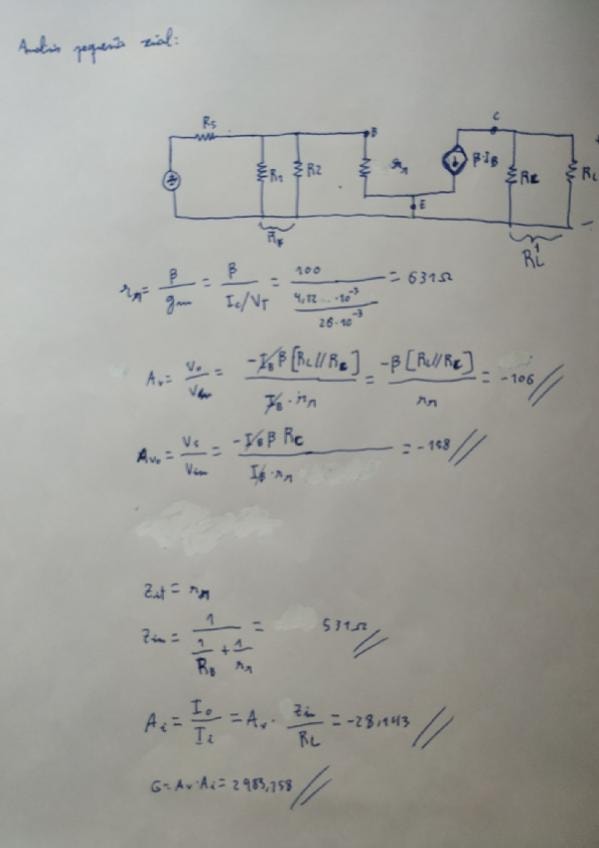 Analisis pequeña señal:
Rs B C
R1 R2 rπ β·IB RC RL
E
RB RL'
rπ = β/gm = β/(Ic/VT) = 100/((4,12...·10⁻³)/(26·10⁻³)) = 631Ω
Av = Vo/Vin = -IB β [RL//RC]/(IB·rπ) = -β [RL//RC]/rπ = -106 //
Avo = Vs/Vin = -IB β RC/(IB·rπ) = -158 //
Zit = rπ
Zin = 1/(1/RB + 1/rπ) = 531Ω //
Ai = Io/Ii = Av · Zin/RL = -28,143 //
G = Av·Ai = 2983,158 //